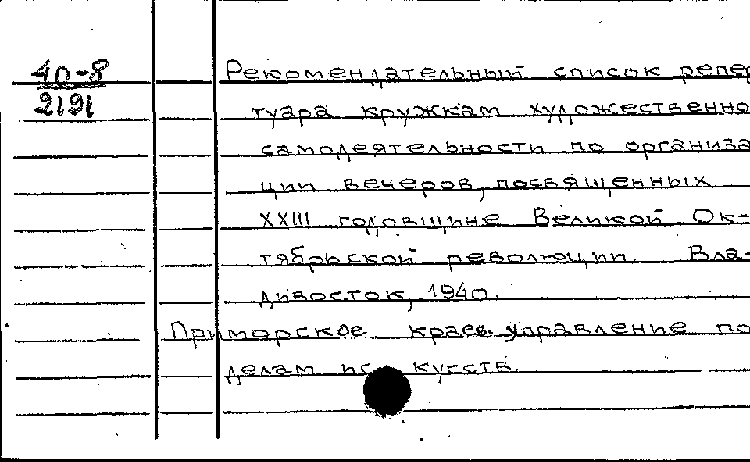 40-8
2191
Рекомендательный список репер
туара кружкам художественно
самодеятельности по организа
ции вечеров, посвященных
XXIII годовщине Великой Ок-
тябрьской революции. Вла-
дивосток, 1940.
Приморское краев. управление по
делам искусств.